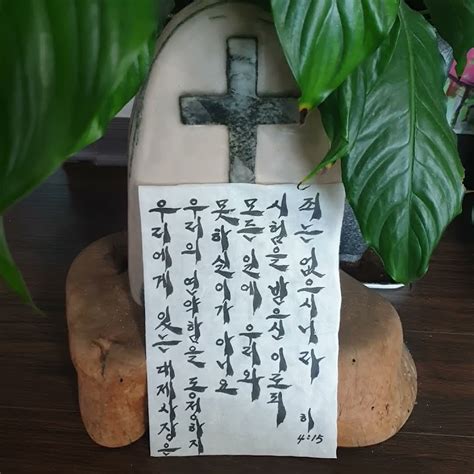 우리에게 있는 대제사장은
우리의 연약함을 동정하지
못하실이가 아니요
모든 일에 우리와
시험을 받으신 이로되
죄는 없으시니라
히
4:15